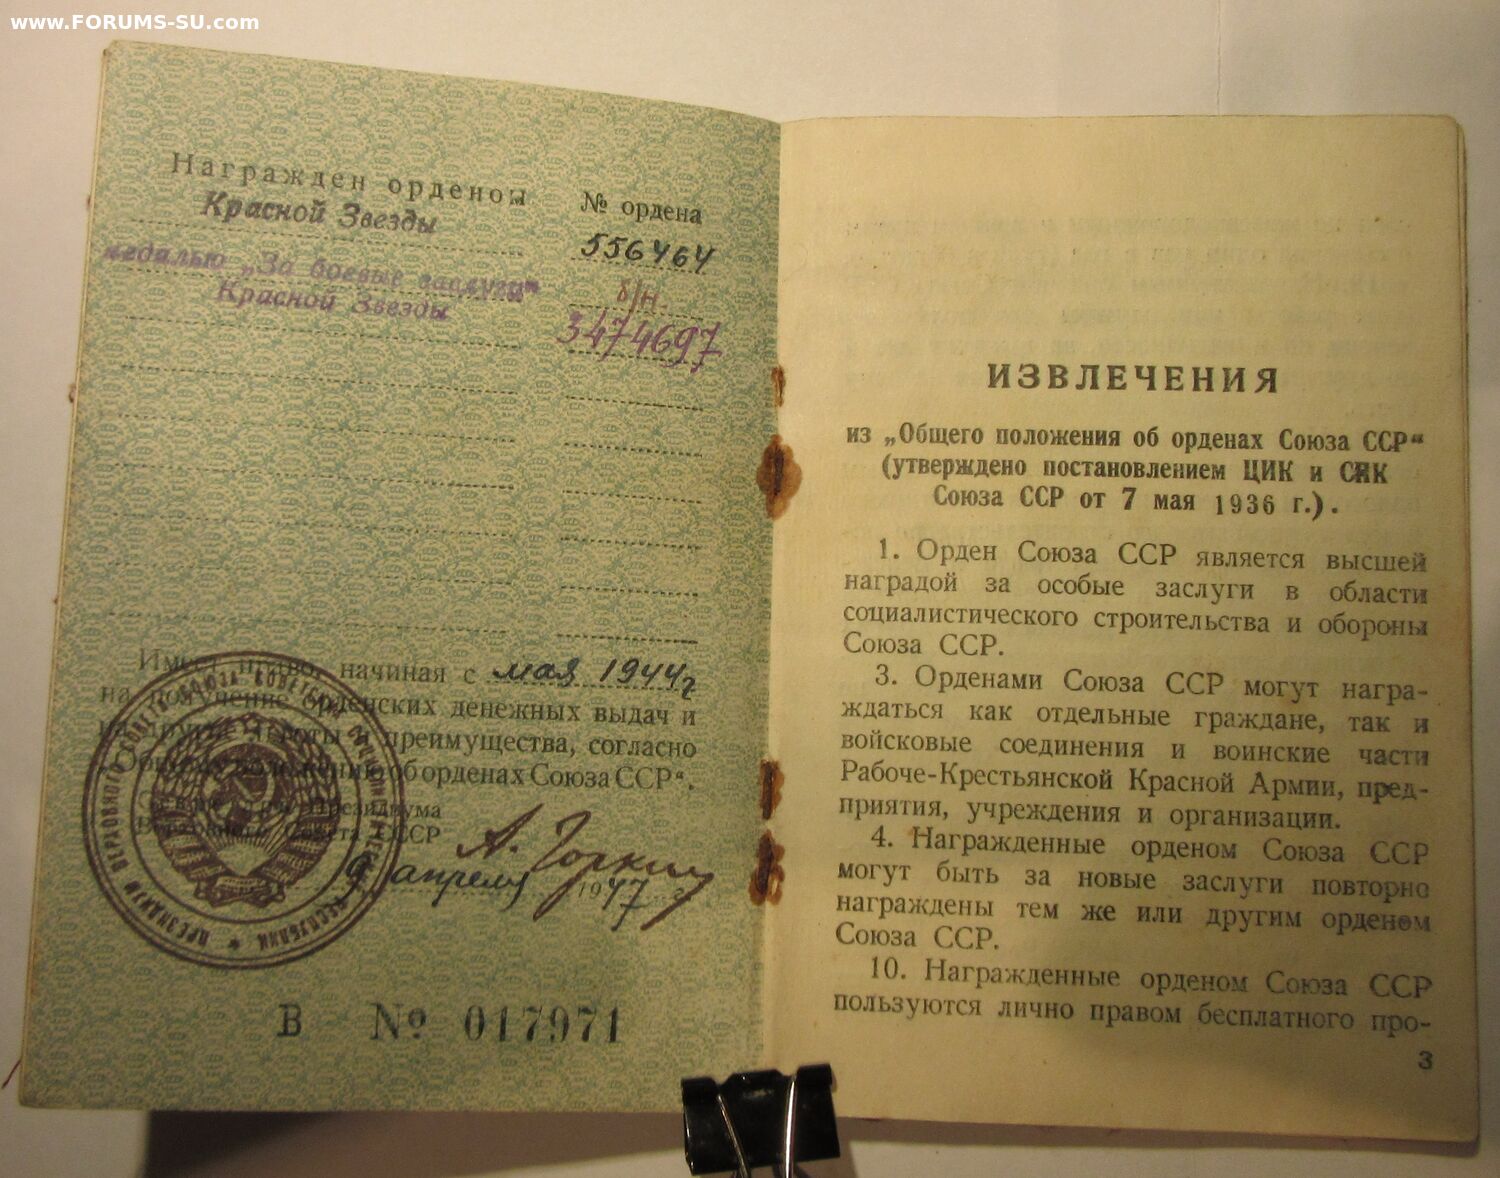 www.FORUMS-SU.com
Награжден орденом
№ ордена
Красной Звезды
556464
медалью „За боевые заслуги"
б/н.
Красной Звезды
3474697
Имеет право, начиная с мая 1944г
на получение орденских денежных выдач и
на другие льготы и преимущества, согласно
„Общему положению об орденах Союза ССР".
Секретарь Президиума
Верховного Совета СССР
А. Горкин
9 апреля 1947 г.
В № 017971
ИЗВЛЕЧЕНИЯ
из „Общего положения об орденах Союза ССР"
(утверждено постановлением ЦИК и СНК
Союза ССР от 7 мая 1936 г.).
1. Орден Союза ССР является высшей
наградой за особые заслуги в области
социалистического строительства и обороны
Союза ССР.
3. Орденами Союза ССР могут награ-
ждаться как отдельные граждане, так и
войсковые соединения и воинские части
Рабоче-Крестьянской Красной Армии, пред-
приятия, учреждения и организации.
4. Награжденные орденом Союза ССР
могут быть за новые заслуги повторно
награждены тем же или другим орденом
Союза ССР.
10. Награжденные орденом Союза ССР
пользуются лично правом бесплатного про-
3